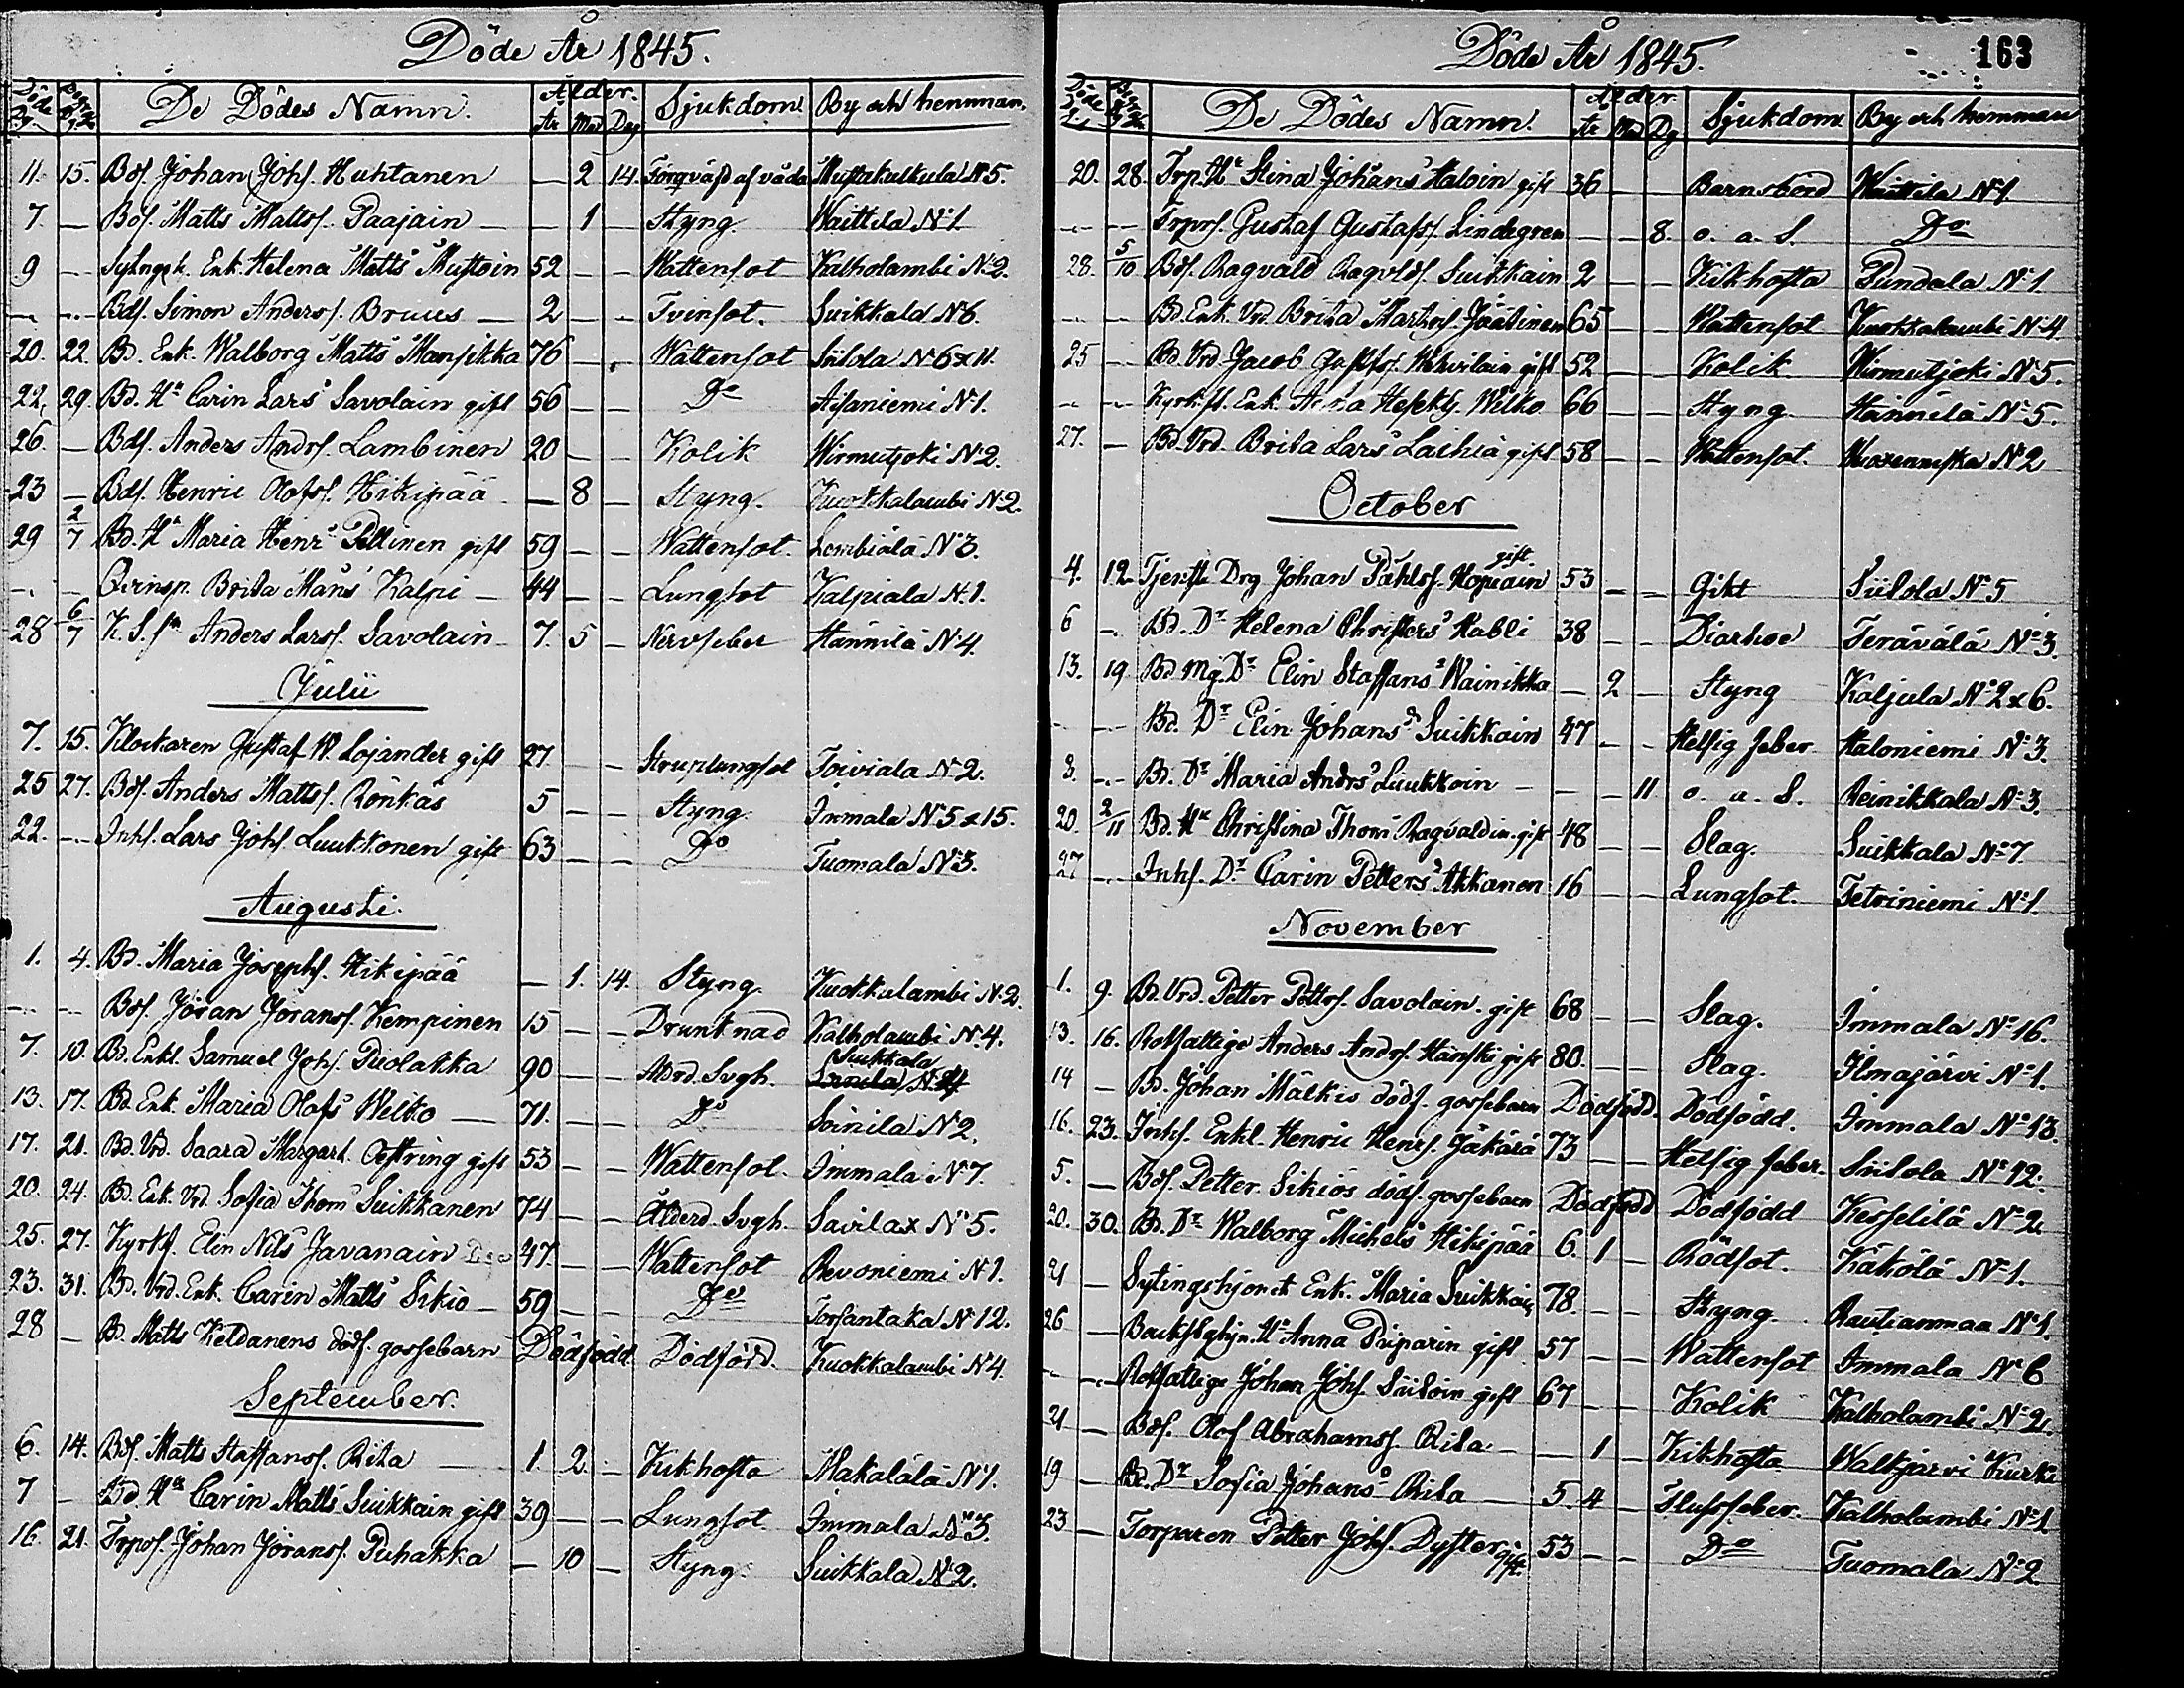 Döde År 1845.
Döde Dg. Begr. Dg. De Dödes Namn. Ålder. År Mån Dag Sjukdom. By och hemman.
11. 15. Bds. Johan Johs. Huhtanen — 2 14 Förqväfd af våda Mustakulkula N:5.
7. — Bds. Matts Mattss. Paajain — — 1 — Styng Waittila N:1.
9 — Enk. Helena Matts Mustoin 52 — — Wattensot Kalholambi N:2.
— — Bds. Simon Anderss. Bruus — 2 — — Tvinsot. Suikkala N:6.
20. 22. Bd. Enk. Walborg Matts Mansikka 76 — — Wattensot Siilola N:6 x 11.
22. 29. Bd. Hu Carin Lars Savolain gift 56 — — Do Aisaniemi N:1.
26. — Bds. Anders Andrs. Lambinen 20 — — Kolik Wirmutjoki N:2.
23 — Bds. Henric Olofss. Hikipää — 8 — Styng. Kuokkalambi N:2.
29 2/7 Bd. Hu Maria Henrs Peltinen gift 59 — — Wattensot. Lembiälä N:3.
— — Qvinsp. Brita Måns Kalpi — 44 — — Lungsot Kalpiala N:1.
28 6/7 K. S. sn Anders Larss. Savolain — 7. 5 — Nervfeber Hännilä N:4.
Julii
7. 15. Klockaren Gustaf W. Lojander gift 27 — — Struplungsot Toiviala N:2.
25 27. Bds. Anders Mattss. Rönkäs 5 — — Styng. Immala N:5 x 15.
22. — Inhs. Lars Johs. Luukkonen gift 63 — — Do Tuomala N:3.
Augusti.
1. 4. Bd. Maria Josephs. Hikipää — 1. 14. Styng. Kuokkalambi N:2.
— — Bds. Jöran Jöranss. Kempinen 15 — — Drunknad Kalholambi N:4.
7. 10. Bd. Enkl. Samuel Johs. Puolakka 90 — — Ålrd. Svgh. Suikkala
13. 17. Bd. Enk. Maria Olofs Welko — 71. — — Do Soinila N:2.
17. 21. Bd. Vrd. Saara Margart. Oestring gift 53 — — Wattensot. Immala N:7.
20. 24. Bd. Enk. Vrd. Sofia Thoms Suikkanen 74 — — Ålderd. Svgh. Savilax N:5.
25. 27. Kyrkf. Elin Nils Javanain 47. — — Wattensot Revoniemi N:1.
23. 31. Bd. Vrd. Enk. Carin Matts Sikiö — 59 — — Do Torsantaka N:12.
28 — B. Matts Keldanens dödf. gossebarn Dödfödd Dödfödd. Kuokkalambi N:4.
September.
6. 14. Bds. Matts Staffanss. Rita — 1 2 — Kikhosta Makalälä N:1.
7 — Bd. Hu Carin Matts Suikkain gift 39 — — Lungsot. Immala N:3.
16. 21. Trpds. Johan Jöranss. Puhakka — 10 — Styng. Suikkala N:2.
Döde År 1845. 163
Döde Dg. Begr. Dg. De Dödes Namn. Ålder År Mån Dg Sjukdom By och hemman
20. 28. Trp. Hu Stina Johans Haloin gift 36 — — Barnsbörd Waittila N:1.
— — Trprs. Gustaf Gustafss. Lindegren — — 8. o. a. S. Do
28. 5/10 Bds. Ragvald Ragvlds. Suikkain 2 — — Kikhosta Pundala N:1.
— — Bd. Enk. Vrd. Brita Jääsinen 65 — — Wattensot Kuokkalambi N:4.
25 — Bd. Vrd Jacob gift 52 — — Kolik. Wirmutjoki N:5.
— — Enk. Anna Welko 66 — — Styng Hännilä N:5.
27. — Bd. Vrd. Brita Lars Laihia gift 58 — — Wattensot. Wuoxenniska N:2
October
4. 12. Tjenste Drg Johan Påhlss. Hopiain gift. 53 — — Gikt Siilola N:5
6 — Bd. Dr Helena Christers Habli 38 — — Diarhoe Terävälä N:3.
13. 19 Bd. Mg. Dr Elin Staffans Wainikka — 2 — Styng Kaljula N:2 x 6.
— — Bd. Dr Elin Johans Suikkain 47 — — Hetsig feber Haloniemi N:3.
8. — Bd. Dr Maria Andrs Luukkoin — — — 11 o. a. S. Reinikkala N:3.
20. 2/11 Bd. Hu Christina Thoms Ragvaldin gift 48 — — Slag. Suikkala N:7.
27 — Inhs. Dr Carin Petters Akkanen 16 — — Lungsot. Tetriniemi N:1.
November
1. 9. Bd. Vrd. Petter Pettrs. Savolain. gift 68 — — Slag. Immala N:16.
13. 16. Rotfattige Anders Andrs. Hänski gift 80. — — Slag. Ilmajärvi N:1.
14 — Bd. Johan Mälkis dödf. gossebarn Dödfödd. Dödfödd. Immala N:13.
16. 23. Inhs. Enkl. Henric Henrs. Jäkärä 73 — — Hetsig feber. Siilola N:12.
5. — Bds. Petter Sikiös dödf. gossebarn Dödfödd Dödfödd Kesselilä N:2.
20. 30. Bd. Dr Walborg Michels Hikipää 6. 1 — Rödsot. Käkölä N:1.
21 — Sytingshjonet Enk. Maria Suikkain 78 — — Styng. Rautianmaa N:1.
26 — Hu Anna Piiparin gift 57 — — Wattensot Immala N:6
— — Rotfattige Johan Johs. Siitoin gift 67 — — Kolik Kalholambi N:2.
21 — Bds. Olof Abrahamss. Rita — — 1 — Kikhosta Walkjärvi Kurki
19 — Bd. Dr Sofia Johans Rita — 5. 4 — Flussfeber. Kalholambi N:1.
23 — Torparen Petter Johs. Dyster gift. 53 — — Do Tuomala N:2